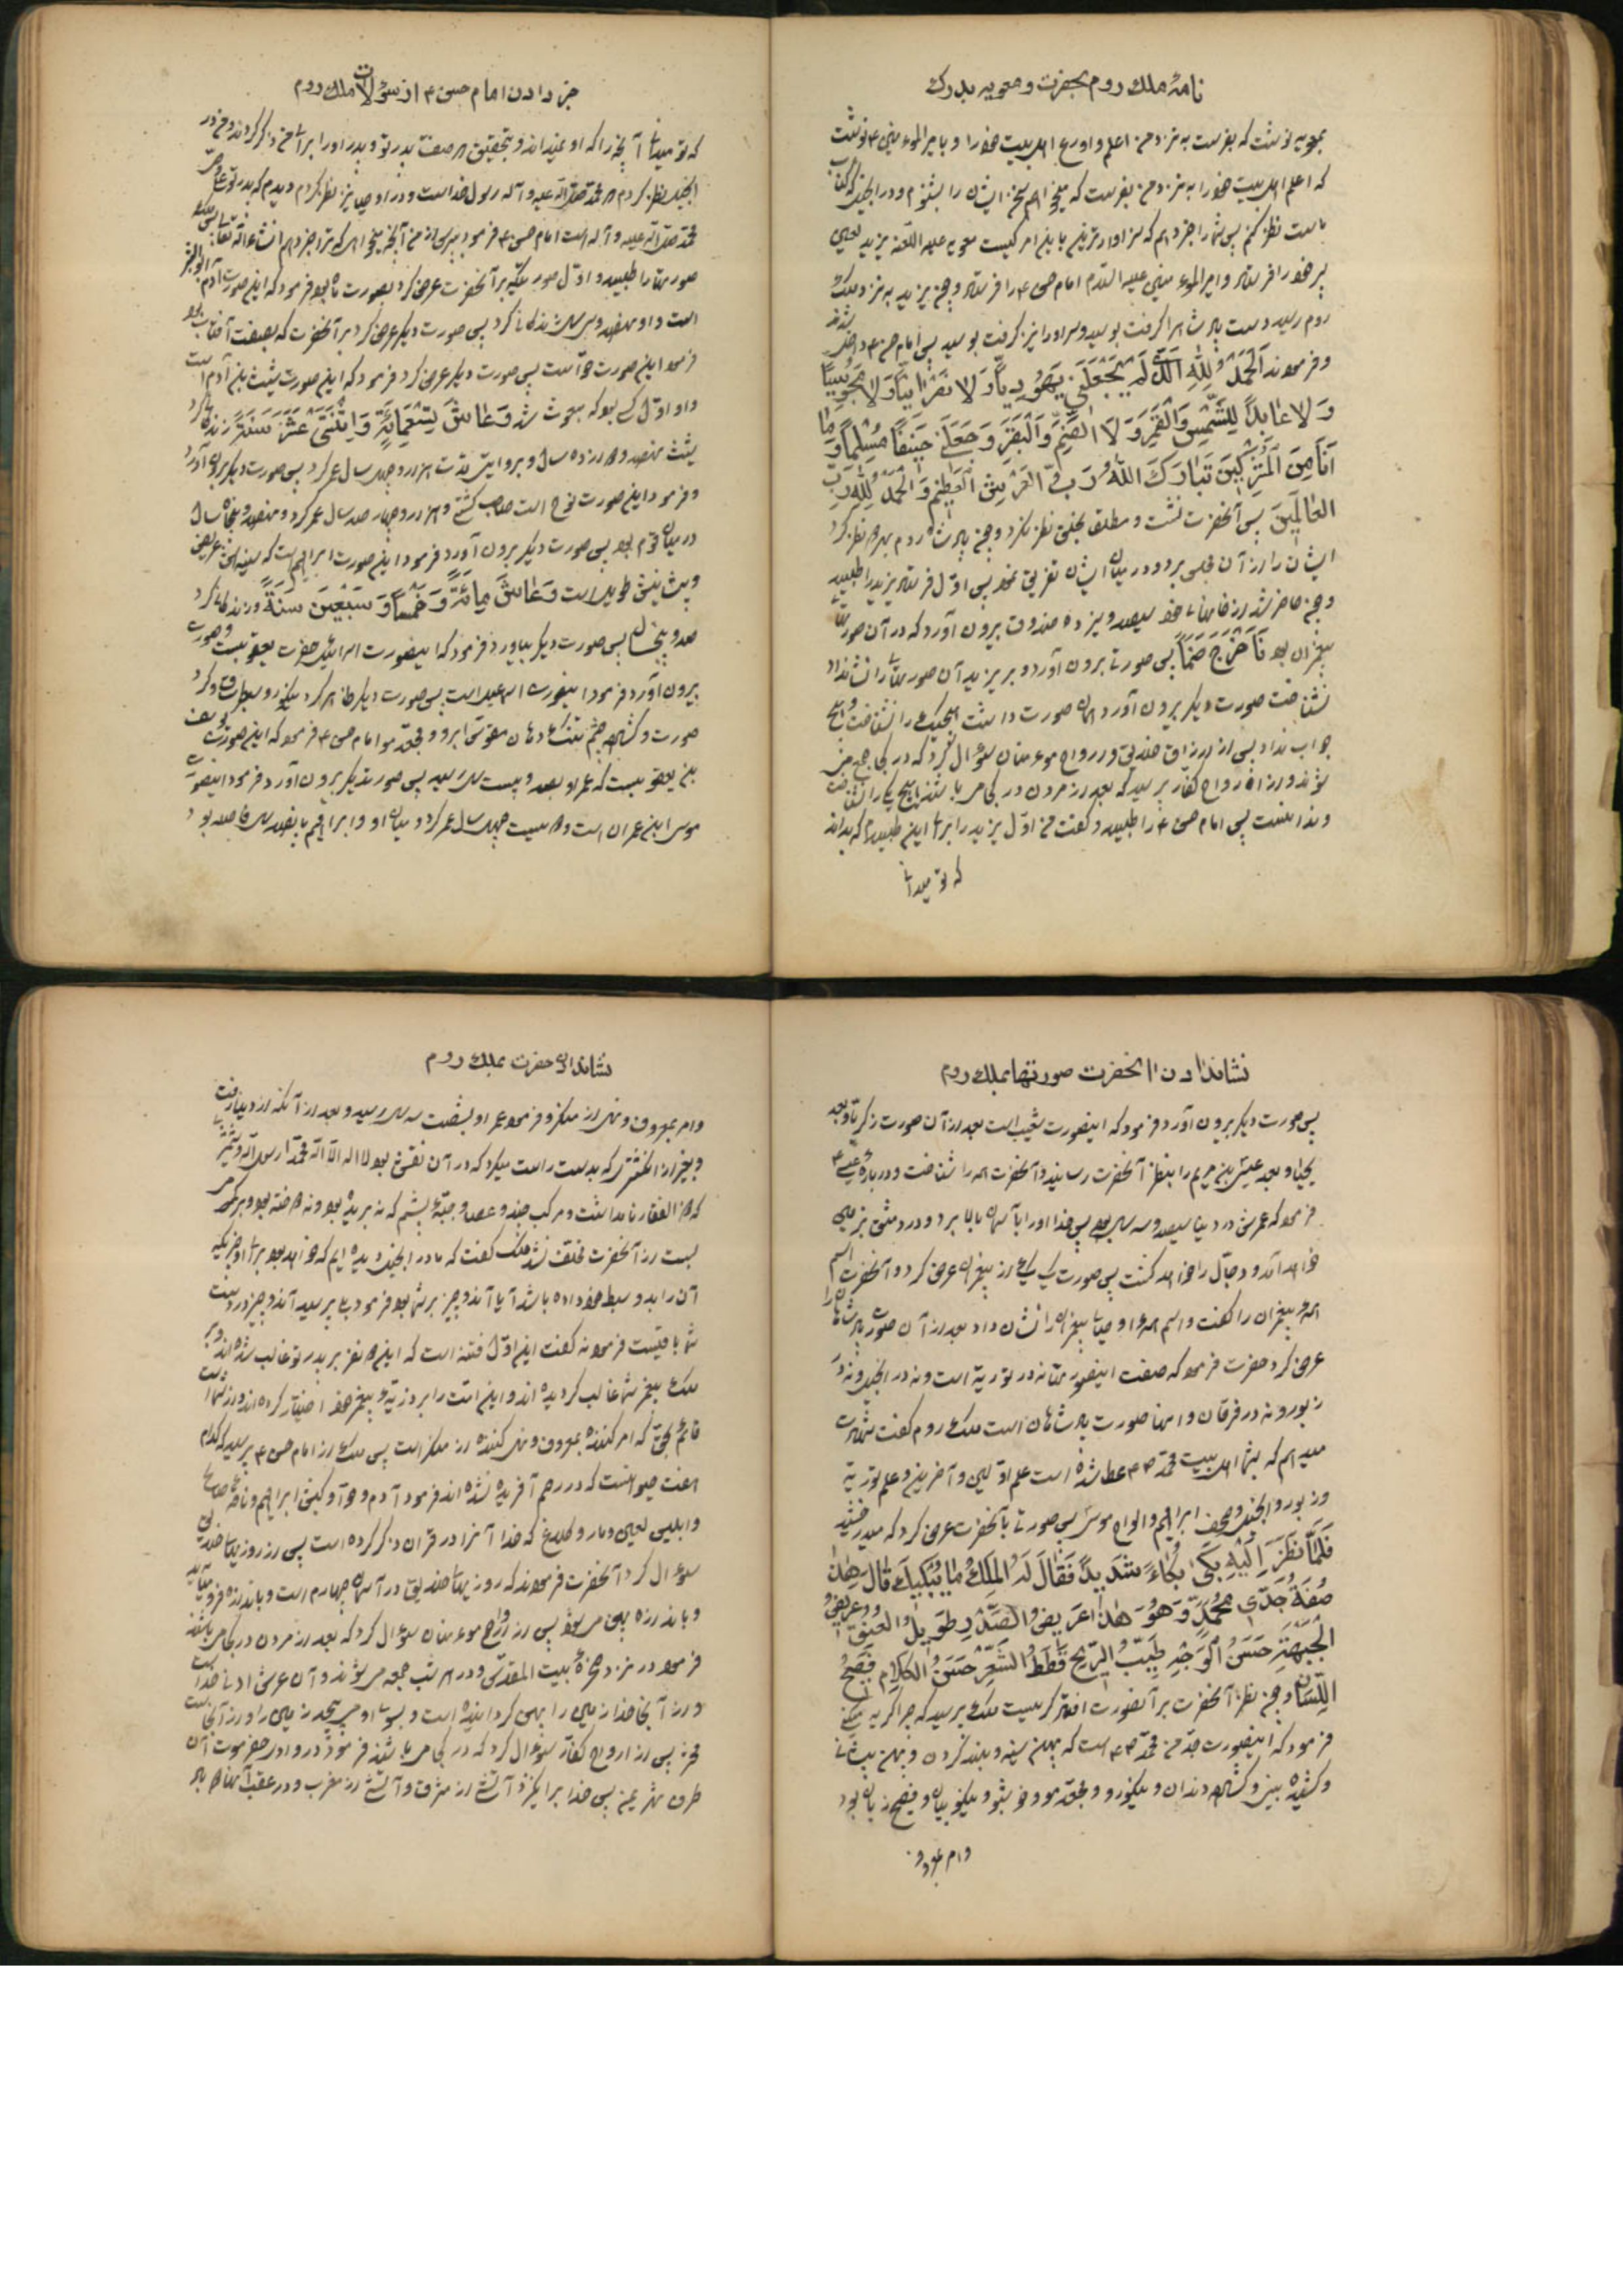 نامهٔ ملك روم بحضرت و معویه بدرك
بمعویه نوشت که بفرست به نزد من اعلم و اورع اهلبیت خود را و بامیرالمؤمنین ع نوشت
که اعلم اهلبیت خود را به نزد من بفرست که میخواهم سخن ایشان را بشنوم و در انجیل که کتاب
ماست نظر کنم پس شما را خبر دهم که سزاوارترین باین امر کیست معویه علیه اللعنه یزید لعین
پسر خود را فرستاد و امیرالمؤمنین علیه السلام امام حسن ع را فرستاد و چون یزید به نزد ملک
روم رسید دست پادشاه را گرفت بوسید و سر او را نیز گرفت بوسید پس امام حسن ع داخل شدند
و فرمودند اَلْحَمْدُ لِلّٰهِ الَّذی لَمْ یَجْعَلْنی یَهُودِیّاً وَ لا نَصْرانِیّاً وَ لا مَجُوسِیّاً
وَ لا عابِداً لِلشَّمْسِ وَ الْقَمَرِ وَ لَا الصَّنَمِ وَ الْبَقَرِ وَ جَعَلَنی حَنیفاً مُسْلِماً وَ ما
اَنَا مِنَ الْمُشْرِکینَ تَبارَكَ اللّٰهُ رَبُّ الْعَرْشِ الْعَظیمِ وَ الْحَمْدُ لِلّٰهِ رَبِّ
العالَمینَ پس آنحضرت نشست و مطلق بخلق نظر نکرد و چون پادشاه روم بهر دو نظر کرد
ایشان را از آن مجلس برد و در میان ایشان تفریق نمود پس اول فرستاد یزید را طلبید
و چون حاضر شد از خانهای خود سیصد و سیزده صندوق بیرون آورد که در آن صورتهای
پیغمبران بود فَاَخْرَجَ صَنَماً پس صورتی بیرون آورد و بر یزید آن صورتها را نشانداد
نشناخت صورت دیگر بیرون آورد همان صورت داشت هیچیک را نشناخت و هیچ
جواب نداد پس از ارزاق خلایق و ارواح مؤمنان سؤال کرد که در کجا جمع می
شوند و از ارواح کفار پرسید که بعد از مردن در کجا می باشند هیچ یک را نشناخت
و ندانست پس امام حسن ع را طلبید و گفت من اول یزید را برای این طلبیدم که بداند
که تو میدانی
خبر دادن امام حسن ع از سؤالات ملك روم
که تو میدانی آنچه را که او نمیداند و بتحقیق که صفت پدر تو و پدر او را برای من ذکر کردند و من در
انجیل نظر کردم که محمد صلی الله علیه و آله رسول خداست و در اوصیا نیز نظر کردم دیدم که پدر تو علی وصی
محمد صلی الله علیه و آله است امام حسن ع فرمود بپرس از من آنچه میخواهی که ترا خبر دهم انشاءالله تعالی پس ملک
صورتها را طلبید و اول صورتیکه بر آنحضرت عرض کرد بصورت ماه بود فرمود که این صورت آدم ابوالبشر
است و او نهصد و سی سال زندگانی کرد پس صورت دیگر عرض کرد بر آنحضرت که بصفت آفتاب بود
فرمود این صورت حوّاست پس صورت دیگر عرض کرد فرمود که این صورت شیث بن آدم است
و او اول کسی بود که مبعوث شد وَ عاشَ تِسْعَمِائَةٍ وَ اثْنَتَیْ عَشَرَ سَنَةً زندگانی کرد
شیث نهصد و دوازده سال و بروایتی مدت هزار و چهل سال عمر کرد پس صورت دیگر بیرون آورد
و فرمود این صورت نوح است صاحب کشتی و هزار و چهار صد سال عمر کرد و نهصد و پنجاه سال
در میان قوم بود پس صورت دیگر بیرون آورد فرمود این صورت ابراهیم است که سینه اش عریض
و پیشانیش طویل است وَ عاشَ مِائَةً وَ خَمْساً وَ سَبْعینَ سَنَةً و زندگانی کرد
صد و پنجاه سال پس صورت دیگر بیاورد فرمود که اینصورت اسرائیل حضرت یعقوبست و صورتی
بیرون آورد فرمود اینصورت اسمعیل است پس صورت دیگر ظاهر کرد نیکو رو
صورت و گشاده چشم تنگ دهان مقوس ابرو و مجعد مو امام حسن ع فرمود که این صورت یوسف
بن یعقوبست که عمر او بصد و بیست سال رسید پس صورت دیگر بیرون آورد فرمود اینصورت
موسی ابن عمران است و دویست چهل سال عمر کرد و میان او و ابراهیم پانصد سال فاصله بود
نشاندادن آنحضرت صورتها بملك روم
پس صورت دیگر بیرون آورد فرمود که اینصورت شعیب است بعد از آن صورت زکریا و بعد
یحیی و بعد عیسی بن مریم را بنظر آنحضرت رسانید و آنحضرت همه را شناخت و در بارهٔ عیسی ع
فرمود که عمرش در دنیا سی و سه سال بود پس خدا او را بآسمان بالا برد و در دمشق بزمین
خواهد آمد و دجال را خواهد کشت پس صورت یک یک از پیغمبران عرض کرد و آنحضرت اسم
همهٔ پیغمبران را گفت و اسم همهٔ اوصیای پیغمبران را نشان داد بعد از آن صورت پادشاهان را
عرض کرد حضرت فرمود که صفت اینصورتها نه در توریة است و نه در انجیل و نه در
زبور و نه در فرقان و اینها صورت پادشاهان است ملک روم گفت شهادت
میدهم که بشما اهلبیت محمد ص عطا شده است علم اولین و آخرین و علم توریة
و زبور و انجیل و صحف ابراهیم و الواح موسی پس صورتی بآنحضرت عرض کرد که میدرخشید
فَلَمّا نَظَرَ اِلَیْهِ بَکٰی بُکاءً شَدیداً فَقالَ لَهُ الْمَلِكُ ما یُبْکیكَ قالَ هٰذا
صُفَةُ جَدّی مُحَمَّدٍ وَ هُوَ هٰذا عَریضُ الصَّدْرِ طَویلُ العُنُقِ وَ عَریضُ
الْجَبْهَةِ حَسَنُ الْوَجْهِ طَیِّبُ الرّیحِ قَطَطُ الشَّعْرِ حَسَنُ الْکَلامِ فَصیحُ
اللِّسانِ و چون نظر آنحضرت بر آنصورت افتاد گریست ملک پرسید که چرا گریه میکنی
فرمود که اینصورت جد من محمد ص است که پهن سینه و بلند گردن و پهن پیشانی
و کشیده بینی و گشاده دندان و نیکو رو و مجعد مو و خوشبو و نیکو بیان و فصیح زبان بود
و امر بمعروف
نشاندادن حضرت بملك روم
و امر بمعروف و نهی از منکر و فرمود عمر او بشصت سه سال رسید و بعد از آنکه از دنیا رفت
و بغیر از انگشتری که بدست راست میکرد که در آن نقش بود لا اله الا الله محمد رسول الله و شمشیری
که ذوالفقار نام داشت و مرکب و عصا و جبهٔ پشم که نه بریده بود و نه دوخته بود و بر کمر
بست از آنحضرت نشد ملک گفت که ما در انجیل دیده ایم که خواهد بود برای او چیزیکه
آن را بدو سبط خود داده باشد آیا آن چیز بر شما بود فرمود بلی پرسید آن چیز در دست
شما باقیست فرمود نه گفت این اول فتنه است که این دو نفر بر پدر تو غالب شده اند و بر
ملک پیغمبر شما غالب گردیده اند و این امت را بر ذریهٔ پیغمبر خود اختیار کرده اند و از شماست
قائم بحق که امر کننده بمعروف و نهی کننده از منکر است پس ملک از امام حسن ع پرسید که کدام
هفت حیوانست که در رحم آفریده نشده اند فرمود آدم و حوا و کبش ابراهیم و ناقهٔ صالح
و ابلیس لعین و مار و کلاغ که خدا آنرا در قرآن ذکر کرده است پس از روزیهای خلایق
سؤال کرد آنحضرت فرمودند که روزیهای خلایق در آسمان چهارم است و باندازه فرود میآید
و باندازه پهن میشود پس از ارواح مؤمنان سؤال کرد که بعد از مردن در کجا می باشند
فرمود در نزد صخرهٔ بیت المقدس و در هر شب جمعه میشوند و آن عرش ادنای خداست
و از آنجا خدا زمین را پهن گردانیده است و بسوی او می پیچد زمین را و از آنجاست
محشر پس از ارواح کفار سؤال کرد که در کجا می باشند فرمود در وادی حضرموت آن
طرف شهر یمن پس خدا بر انگیزد آتشی از مشرق و آتشی از مغرب و در عقب آنها دو باد